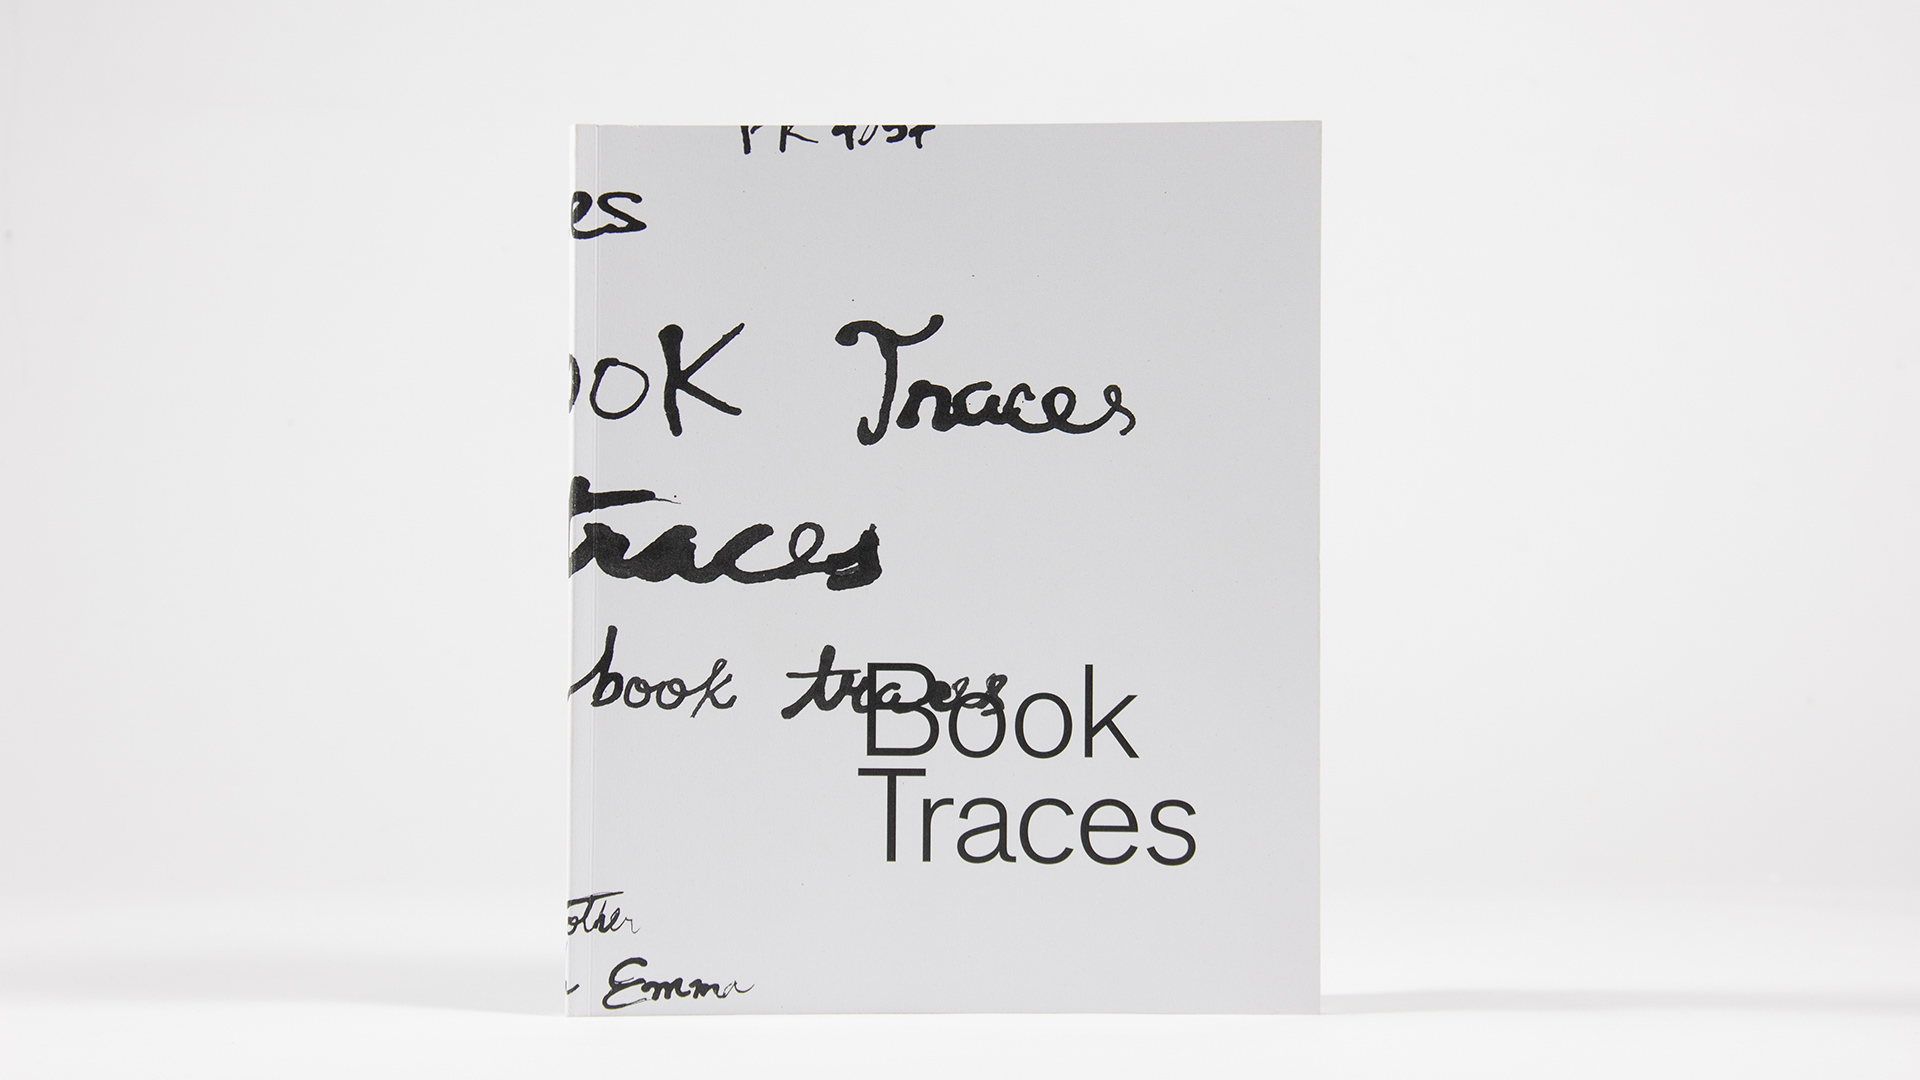 es
ook Traces
traces
book traces
Book
Traces
other
Emma